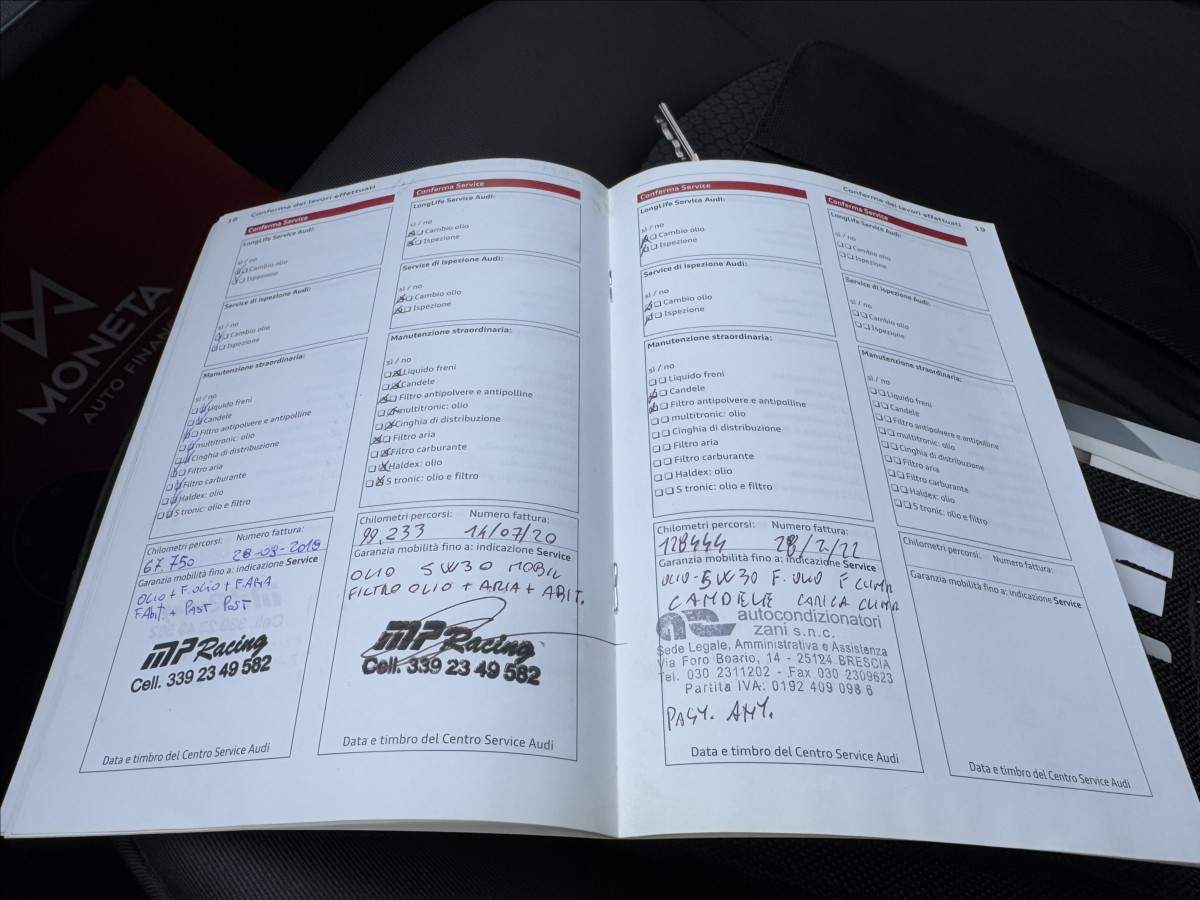 MONETA
AUTO FINAN
18 Conferma dei lavori effettuati
Conferma Service
LongLife Service Audi:
sì / no
Cambio olio
Ispezione
Service di ispezione Audi:
sì / no
Cambio olio
Ispezione
Manutenzione straordinaria:
sì / no
Liquido freni
Candele
Filtro antipolvere e antipolline
multitronic: olio
Cinghia di distribuzione
Filtro aria
Filtro carburante
Haldex: olio
S tronic: olio e filtro
Chilometri percorsi: Numero fattura:
67.750 28-09-2019
Garanzia mobilità fino a: indicazione Service
OLIO + F.OLIO + F.ARIA
F.ABIT. + PAST POST
MP Racing
Cell. 339 23 49 582
Data e timbro del Centro Service Audi
Conferma Service
LongLife Service Audi:
sì / no
Cambio olio
Ispezione
Service di ispezione Audi:
sì / no
Cambio olio
Ispezione
Manutenzione straordinaria:
sì / no
Liquido freni
Candele
Filtro antipolvere e antipolline
multitronic: olio
Cinghia di distribuzione
Filtro aria
Filtro carburante
Haldex: olio
S tronic: olio e filtro
Chilometri percorsi: Numero fattura:
99.233 14/07/20
Garanzia mobilità fino a: indicazione Service
OLIO 5W30 MOBIL
FILTRO OLIO + ARIA + ABIT.
MP Racing
Cell. 339 23 49 582
Data e timbro del Centro Service Audi
Conferma Service
LongLife Service Audi:
sì / no
Cambio olio
Ispezione
Service di ispezione Audi:
sì / no
Cambio olio
Ispezione
Manutenzione straordinaria:
sì / no
Liquido freni
Candele
Filtro antipolvere e antipolline
multitronic: olio
Cinghia di distribuzione
Filtro aria
Filtro carburante
Haldex: olio
S tronic: olio e filtro
Chilometri percorsi: Numero fattura:
128444 28/2/22
Garanzia mobilità fino a: indicazione Service
OLIO-5W30 F. OLIO F CLIMA
CANDELE CARICA CLIMA
autocondizionatori
zani s.n.c.
Sede Legale, Amministrativa e Assistenza
Via Foro Boario, 14 - 25124 BRESCIA
Tel. 030 2311202 - Fax 030 2309623
Partita IVA: 0192 409 098 6
PAST. ANT.
Data e timbro del Centro Service Audi
Conferma dei lavori effettuati 19
Conferma Service
LongLife Service Audi:
sì / no
Cambio olio
Ispezione
Service di ispezione Audi:
sì / no
Cambio olio
Ispezione
Manutenzione straordinaria:
sì / no
Liquido freni
Candele
Filtro antipolvere e antipolline
multitronic: olio
Cinghia di distribuzione
Filtro aria
Filtro carburante
Haldex: olio
S tronic: olio e filtro
Chilometri percorsi: Numero fattura:
Garanzia mobilità fino a: indicazione Service
Data e timbro del Centro Service Audi